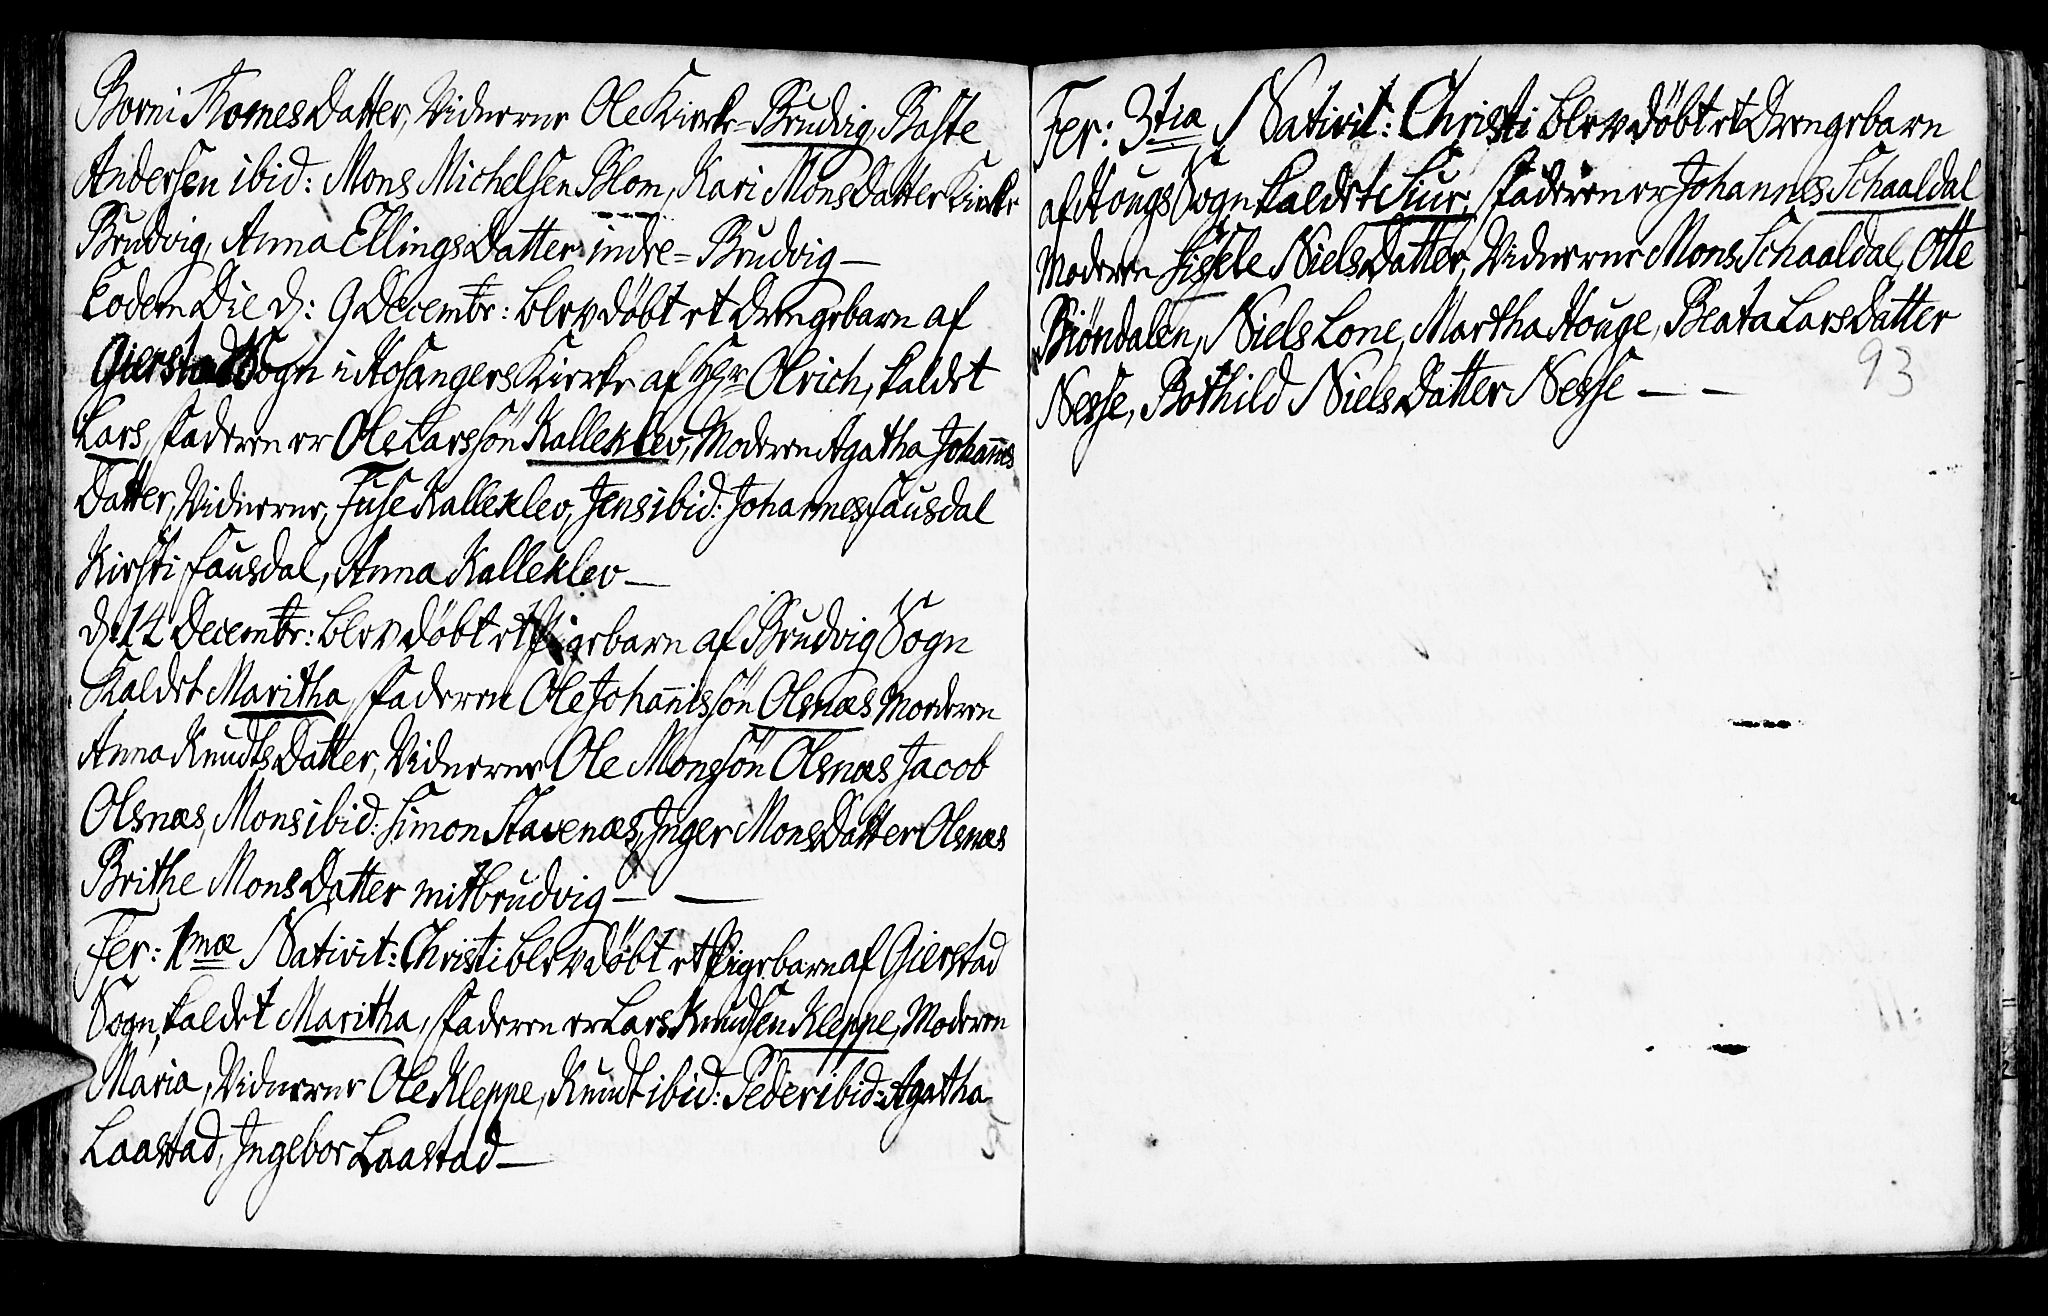 Borni Thomes Datter, Vidnerne Ole Kirke-Brudvig, Baste
Andersen ibid: Mons Michelsen Blom, Kari Mons Datter Kirke
Brudvig, Anna Ellings Datter indre= Brudvig—
Eodem Die d: 9 Decembr: blev døbt et Drengebarn af
Gierstad Sogn i Hosangers Kierke af Hr Olrich, kaldet
Lars, Faderen er Ole Larssøn Kalleklev, Moderen Agatha Johan̄es
Datter, Vidnerne, Fuse Kalleklev, Jens ibid: Johannes Fausdal
Kirsti Fausdal, Anna Kalleklev—
d: 14 Decembr: blev døbt et Pigebarn af Brudvig Sogn
Kaldet Maritha, Faderen Ole Johan̄issøn Olsnæs Moderen
Anna Knudts Datter, Vidnerne Ole Monssøn Olsnæs Jacob
Olsnæs, Mons ibid: Simon Stavenæs, Inger Mons Datter Olsnæs
Brithe Mons Datter mitbrudvig— —
Fer: 1mæ Nativit: Christi blev døbt et Pigebarn af Gierstad
Sogn, kaldet Maritha, Faderen er Lars Knudsen Kleppe, Moderen
Maria, Vidnerne Ole Kleppe, Knudt ibid: Peder ibid: Agatha
Laastad, Ingebor Laastad—
Fer: 3tia Nativit: Christi blev døbt et Drengebarn
af Hougs Sogn kaldet Siur, Faderen er Johannes Schaaldal
Moderen Sissele Niels Datter, Vidnerne Mons Schaaldal, Otte
Biøndalen, Niels Lone, Martha Houge, Beata Lars Datter
Nesse, Bothild Niels Datter Nesse — —
93